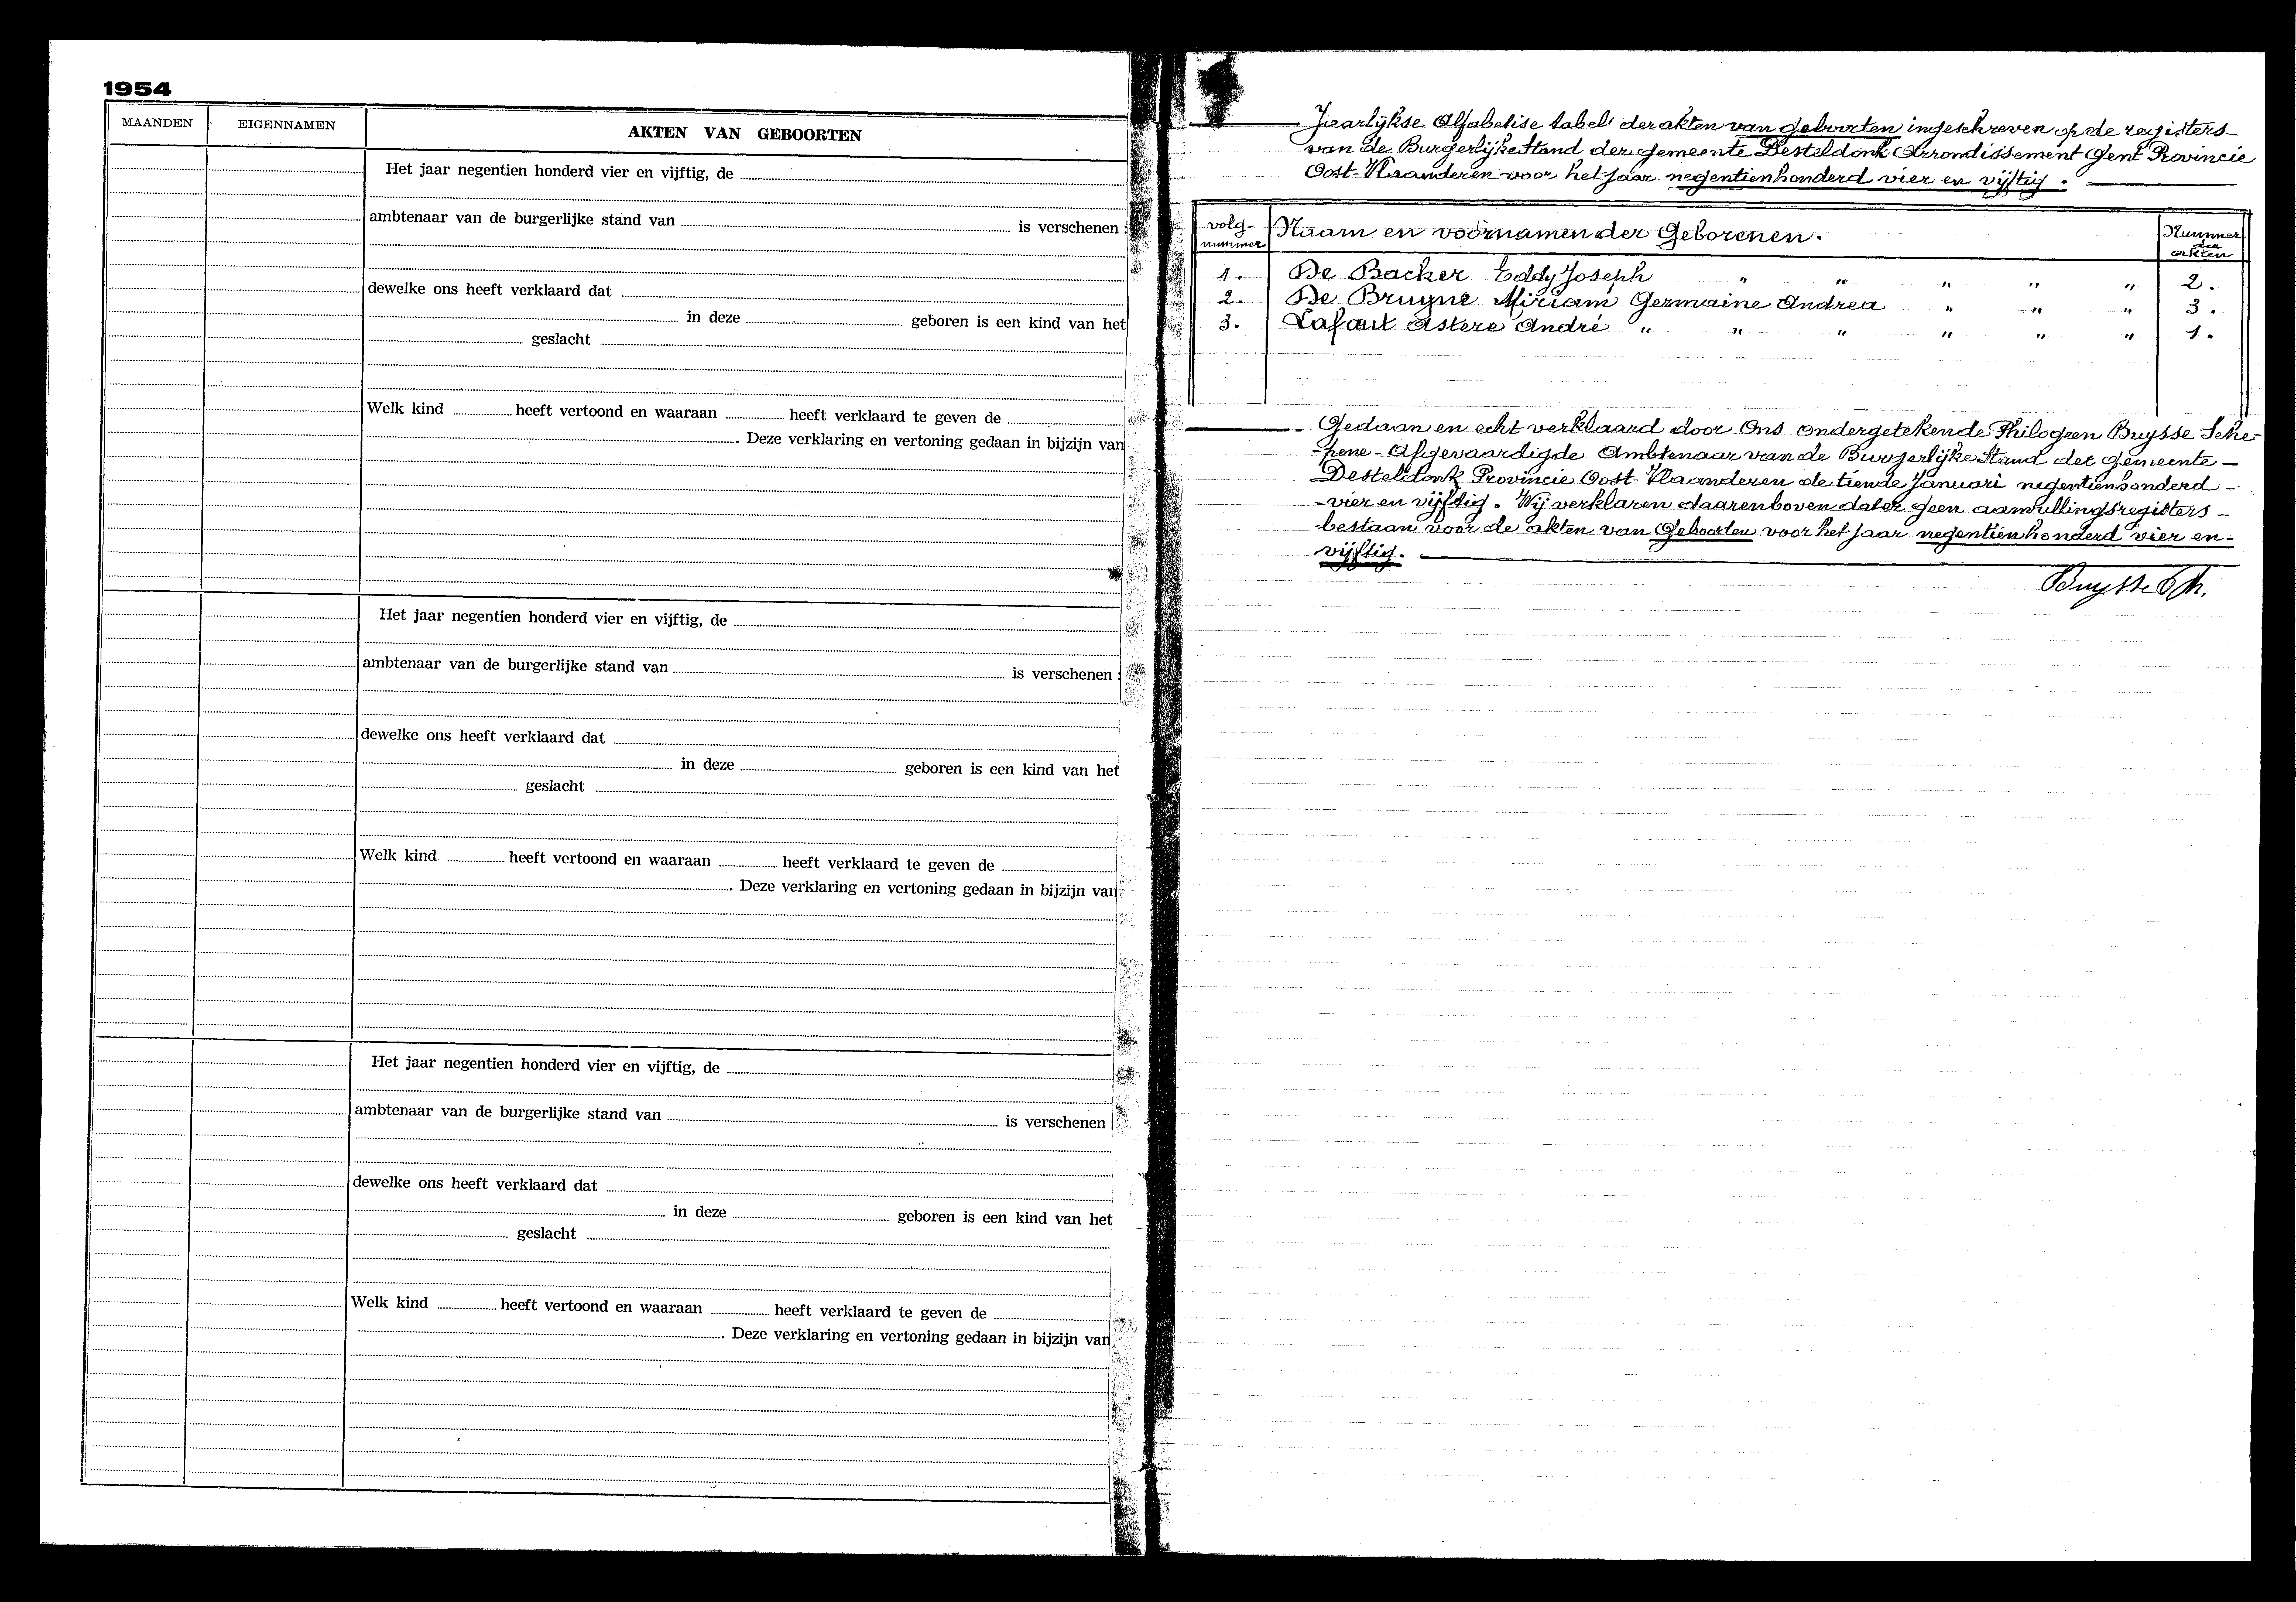 1954
MAANDEN EIGENNAMEN AKTEN VAN GEBOORTEN
Het jaar negentien honderd vier en vijftig, de
ambtenaar van de burgerlijke stand van is verschenen :
dewelke ons heeft verklaard dat
in deze geboren is een kind van het
geslacht
Welk kind heeft vertoond en waaraan heeft verklaard te geven de
. Deze verklaring en vertoning gedaan in bijzijn van
Het jaar negentien honderd vier en vijftig, de
ambtenaar van de burgerlijke stand van is verschenen :
dewelke ons heeft verklaard dat
in deze geboren is een kind van het
geslacht
Welk kind heeft vertoond en waaraan heeft verklaard te geven de
. Deze verklaring en vertoning gedaan in bijzijn van
Het jaar negentien honderd vier en vijftig, de
ambtenaar van de burgerlijke stand van is verschenen
dewelke ons heeft verklaard dat
in deze geboren is een kind van het
geslacht
Welk kind heeft vertoond en waaraan heeft verklaard te geven de
. Deze verklaring en vertoning gedaan in bijzijn van
Jaarlijkse Alfabetise tabel der akten van geboorten ingeschreven op de registers
van de Burgerlijke Stand der gemeente Desteldonk Arrondissement Gent Provincie
Oost-Vlaanderen voor het jaar negentienhonderd vier en vijftig.
volg-nummer Naam en voornamen der Geborenen. Nummer der akten
1. De Backer Eddy Joseph " " " " " 2.
2. De Bruyne Miriam Germaine Andrea " " " 3.
3. Lafaut Astere André " " " " " " 1.
Gedaan en echt verklaard door Ons ondergetekende Philogeen Buysse Sche-
-pene - Afgevaardigde Ambtenaar van de Burgerlijke Stand der gemeente -
Desteldonk Provincie Oost-Vlaanderen de tiende Januari negentienhonderd -
-vier en vijftig. Wij verklaren daarenboven dat er geen aanvullingsregisters -
bestaan voor de akten van Geboorten voor het jaar negentienhonderd vier en -
vijftig.
Buysse Ph.